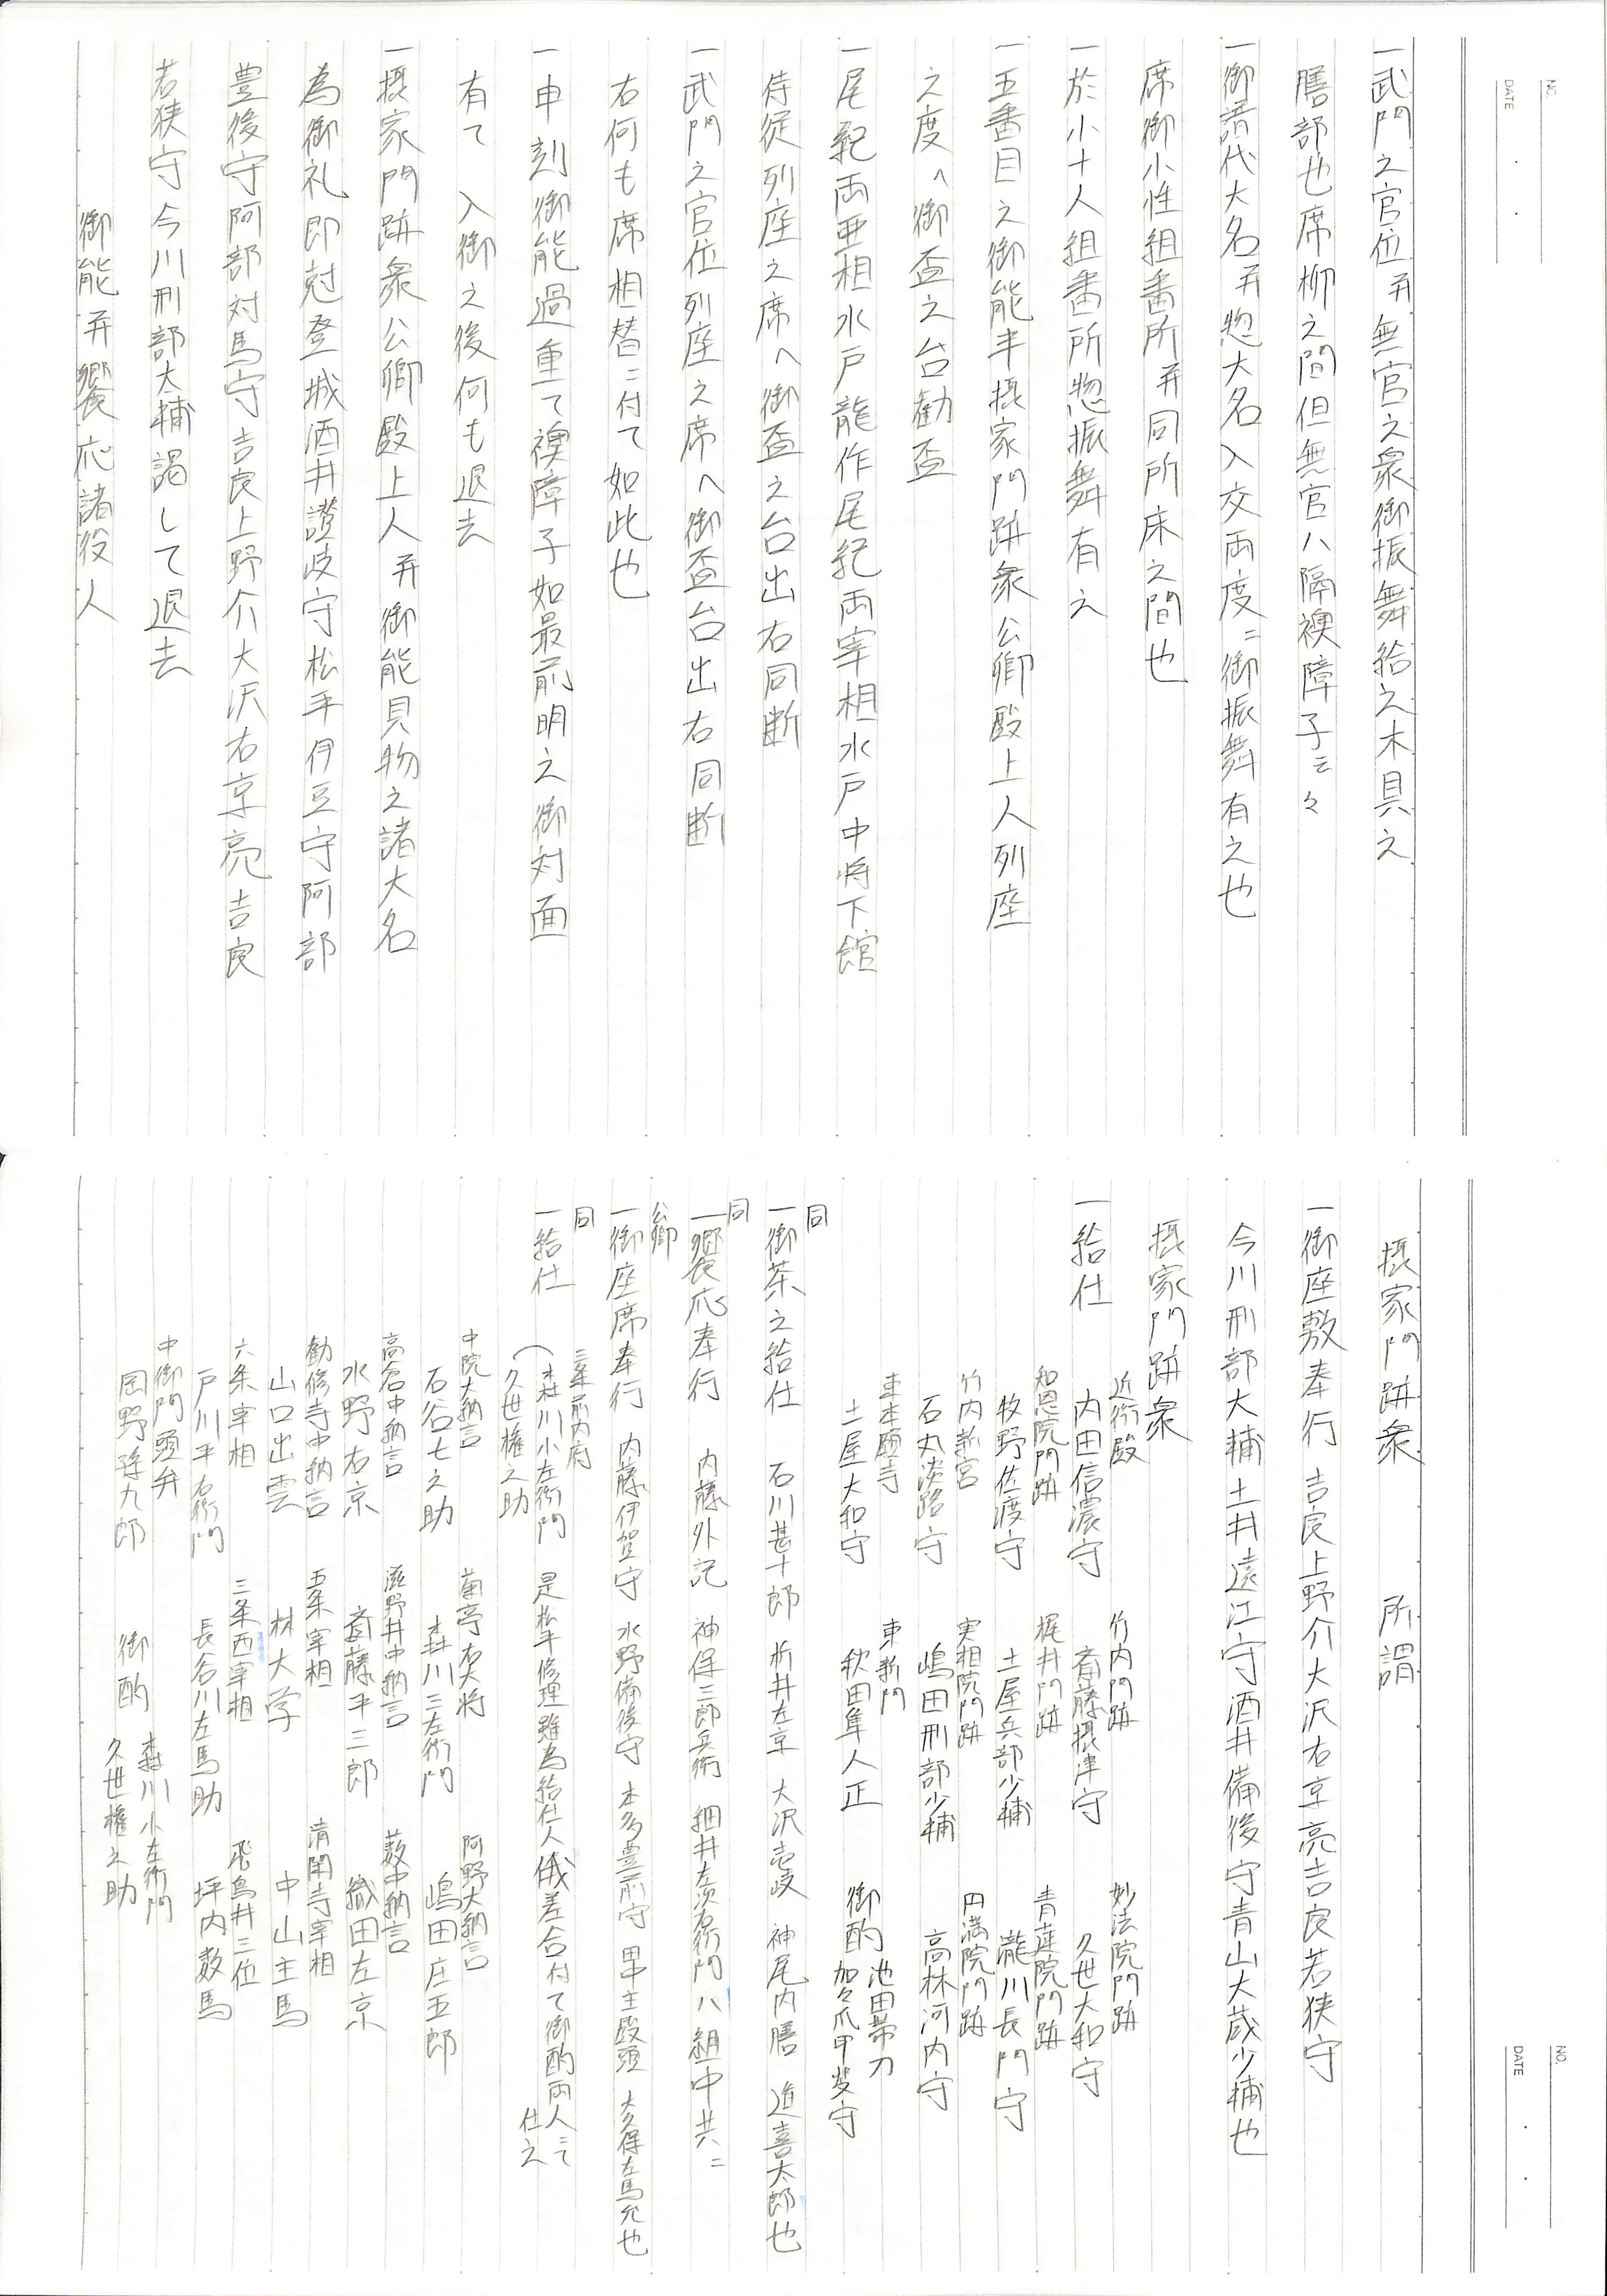 NO.
DATE
一武門之官位并無官之衆御振舞給之木具之
膳部也席柳之間但無官ハ隔襖障子云々
一御譜代大名并惣大名入交両度ニ御振舞有之也
席御小性組番所并同所床之間也
一於小十人組番所惣振舞有之
一五番目之御能半摂家門跡衆公卿殿上人列座
之度へ御盃之台勧盃
一尾紀両亜相水戸龍作尾紀両宰相水戸中将下館
侍従列座之席へ御盃之台出右同断
一武門之官位列座之席へ御盃台出右同断
右何も席相替ニ付て如此也
一申刻御能過重て襖障子如最前明之御対面
有て　入御之後何も退去
一摂家門跡衆公卿殿上人并御能見物之諸大名
為御礼即尅登城酒井讃岐守松平伊豆守阿部
豊後守阿部対馬守吉良上野介大沢右京亮吉良
若狭守今川刑部大輔謁して退去
御能并饗応諸役人
NO.
DATE
摂家門跡衆　所謂
一御座敷奉行　吉良上野介大沢右京亮吉良若狭守
今川刑部大輔土井遠江守酒井備後守青山大蔵少輔也
摂家門跡衆
一給仕　近衛殿　内田信濃守　竹内門跡　斎藤摂津守　妙法院門跡　久世大和守
知恩院門跡　牧野佐渡守　梶井門跡　土屋兵部少輔　青蓮院門跡　瀧川長門守
竹内新宮　石丸淡路守　実相院門跡　嶋田刑部少輔　円満院門跡　高林河内守
東本願寺　土屋大和守　東新門　秋田隼人正　御酌　池田帯刀　加々爪甲斐守
同
一御茶之給仕　石川甚十郎　折井左京　大沢壱岐　神尾内膳　進喜太郎也
同
一饗応奉行　内藤外記　神保三郎兵衛　細井左次右衛門ハ組中共ニ
公卿
一御座席奉行　内藤伊賀守　水野備後守　本多豊前守　里平主殿頭　大久保右馬允也
同
一給仕　三条前内府　森川小左衛門　久世権之助　是松平修理雖為給仕人俄差合付て御酌両人ニて仕之
中院大納言　石谷七之助　菊亭右大将　森川三左衛門　阿野大納言　嶋田庄五郎
高倉中納言　水野右京　滋野井中納言　斎藤平三郎　薮中納言　織田左京
勧修寺中納言　山口出雲　五条宰相　林大学　清閑寺宰相　中山主馬
六条宰相　戸川平右衛門　三条西宰相　長谷川左馬助　飛鳥井三位　坪内数馬
中御門頭弁　岡野孫九郎　御酌　森川小左衛門　久世権之助